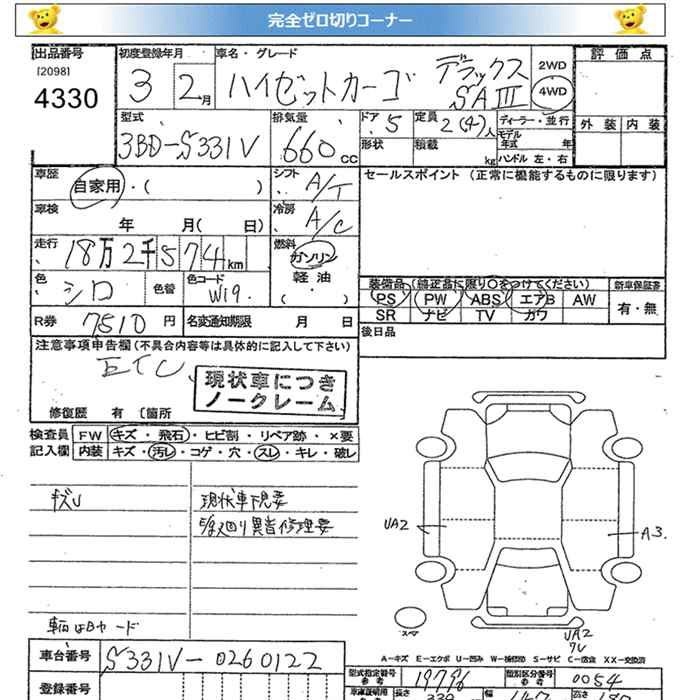 完全ゼロ切りコーナー
出品番号 初度登録年月 車名・グレード 2WD 評価点
[2098] 3 2月 ハイゼットカーゴ デラックス SAIII 4WD
4330
型式 排気量 ドア 5 定員 2(4)人 ディーラー・並行 外装 内装
3BD-S331V 660cc モデル年式 年
形状 積載 kg ハンドル 左・右
車歴 自家用・( ) シフト A/T セールスポイント (正常に機能するものに限ります)
車検 年 月( 日) 冷房 A/C
走行 18万2千574km 燃料 ガソリン
軽油・( )
色 シロ 色替 色コード W19 装備品(純正品に限り〇をつけてください) 新車保証書
PS PW ABS エアB AW 有・無
R券 7510円 名変通知期限 月 日 SR ナビ TV カワ
注意事項申告欄(不具合内容等は具体的に記入して下さい) 後日品
ETC
現状車につき
ノークレーム
修復歴 有 〔箇所
検査員 FW キズ・飛石・ヒビ割・リペア跡・×要
記入欄 内装 キズ・汚レ・コゲ・穴・スレ・キレ・破レ
キズU 現状車下見要
UA2 A3
スペア
UA2
車台番号 S331V-0260122 A-キズ E-エクボ U-凹み W-補修跡 S-サビ C-腐食 XX-交換済
型式指定番号 19796 類別区分番号 0054
登録番号 車庫証明用 長さ 339 幅 147 高さ